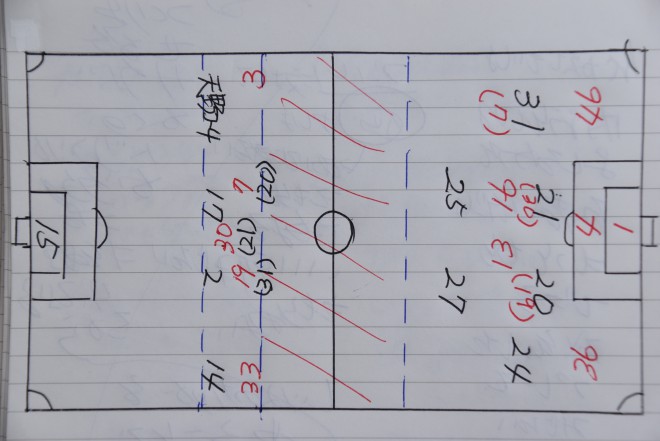 1
94 4 36
31 21 20 24
(17) (36) (19)
31
25 27
(20) (21) (31)
3 7 30 19 33
天野4 17 2 14
15